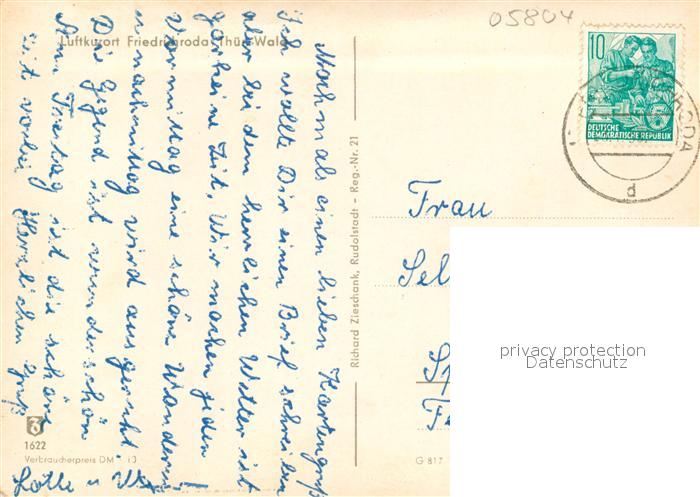 05804
Luftkurort Friedrichroda Thür. Wald
Nochmals einen lieben Kartengruß
Ich wollte Dir einen Brief schreiben
aber bei dem herrlichen Wetter ist
gar keine Zeit. Wir machen jeden
Vormittag eine schöne Wanderung
nachmittag wird ausgeruht.
Die Gegend ist wunderschön
Am Freitag ist die schöne
Zeit vorbei
Herzlichen Gruß
Lotte u.
Richard Zieschank, Rudolstadt – Reg.-Nr. 21
10
DEUTSCHE
DEMOKRATISCHE REPUBLIK
RODA
d
Frau
Sel
privacy protection
Datenschutz
3
1622
Verbraucherpreis DM
G 817